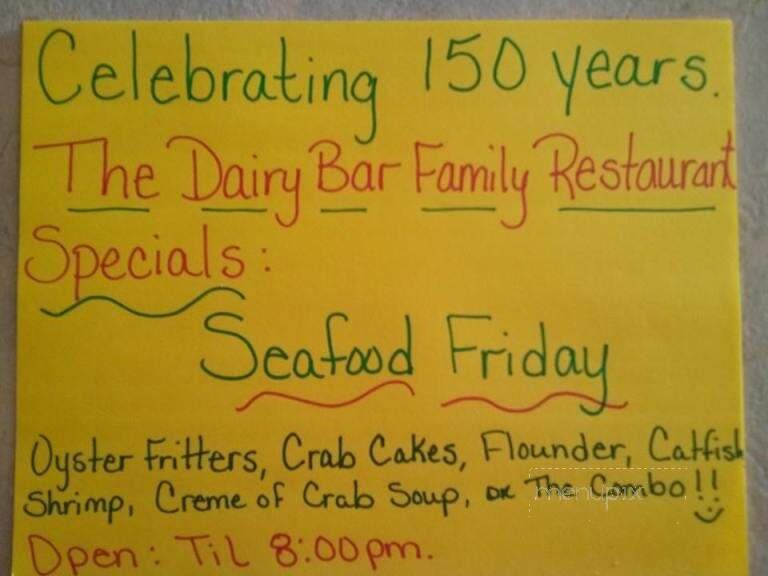 Celebrating 150 years.
The Dairy Bar Family Restaurant
Specials:
Seafood Friday
Oyster Fritters, Crab Cakes, Flounder, Catfish
Shrimp, Creme of Crab Soup, or The Combo!!
menupix
Open: Til 8:00pm.